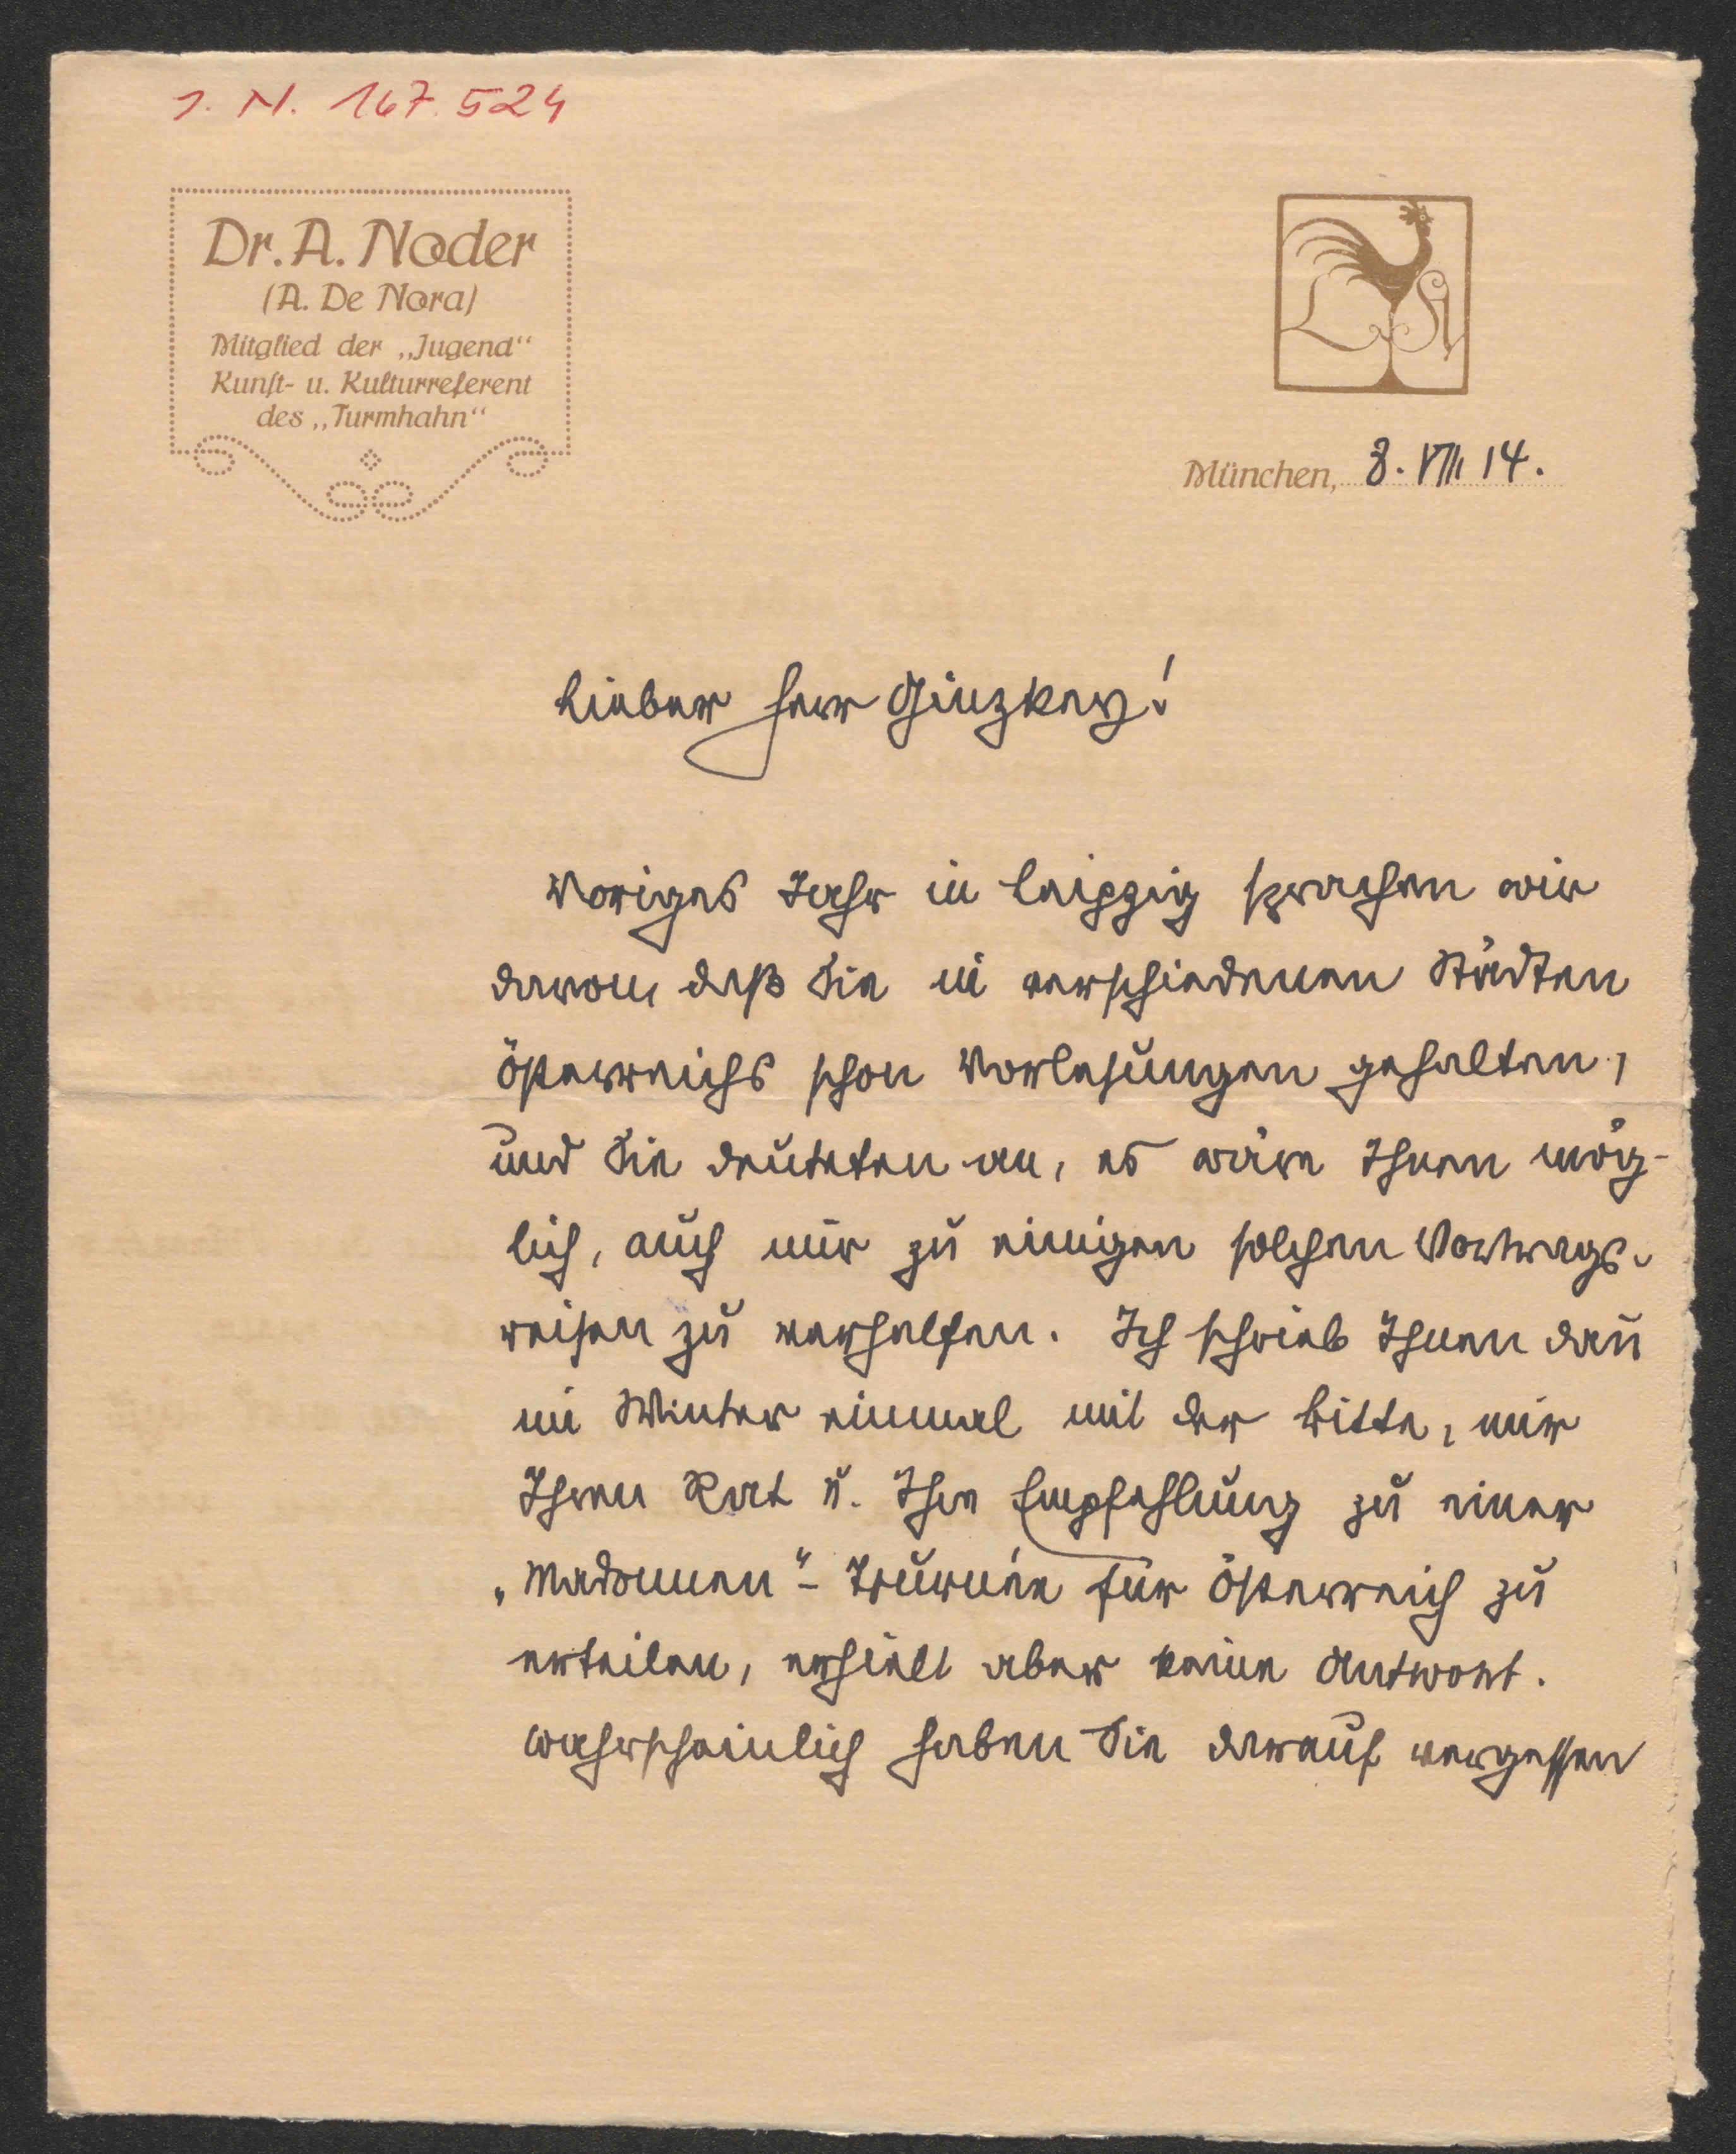 J. N. 167.524
Dr. A. Noder
(A. De Nora)
Mitglied der „Jugend“
Kunſt- u. Kulturreferent
des „Turmhahn“
München, 8. VIII 14.
Lieber Herr Ginzkey!
Voriges Jahr in Leipzig sprachen wir
davon, daß Sie in verschiedenen Städten
Österreichs schon Vorlesungen gehalten,
und Sie deuteten an, es wäre Ihnen mög-
lich, auch mir zu einigen solchen Vortrags-
reisen zu verhelfen. Ich schrieb Ihnen dañ
im Winter einmal mit der Bitte, mir
Ihren Rat u. Ihre Empfehlung zu einer
„Madonnen“-Tournée für Österreich zu
erteilen, erhielt aber keine Antwort.
Wahrscheinlich haben Sie darauf vergessen